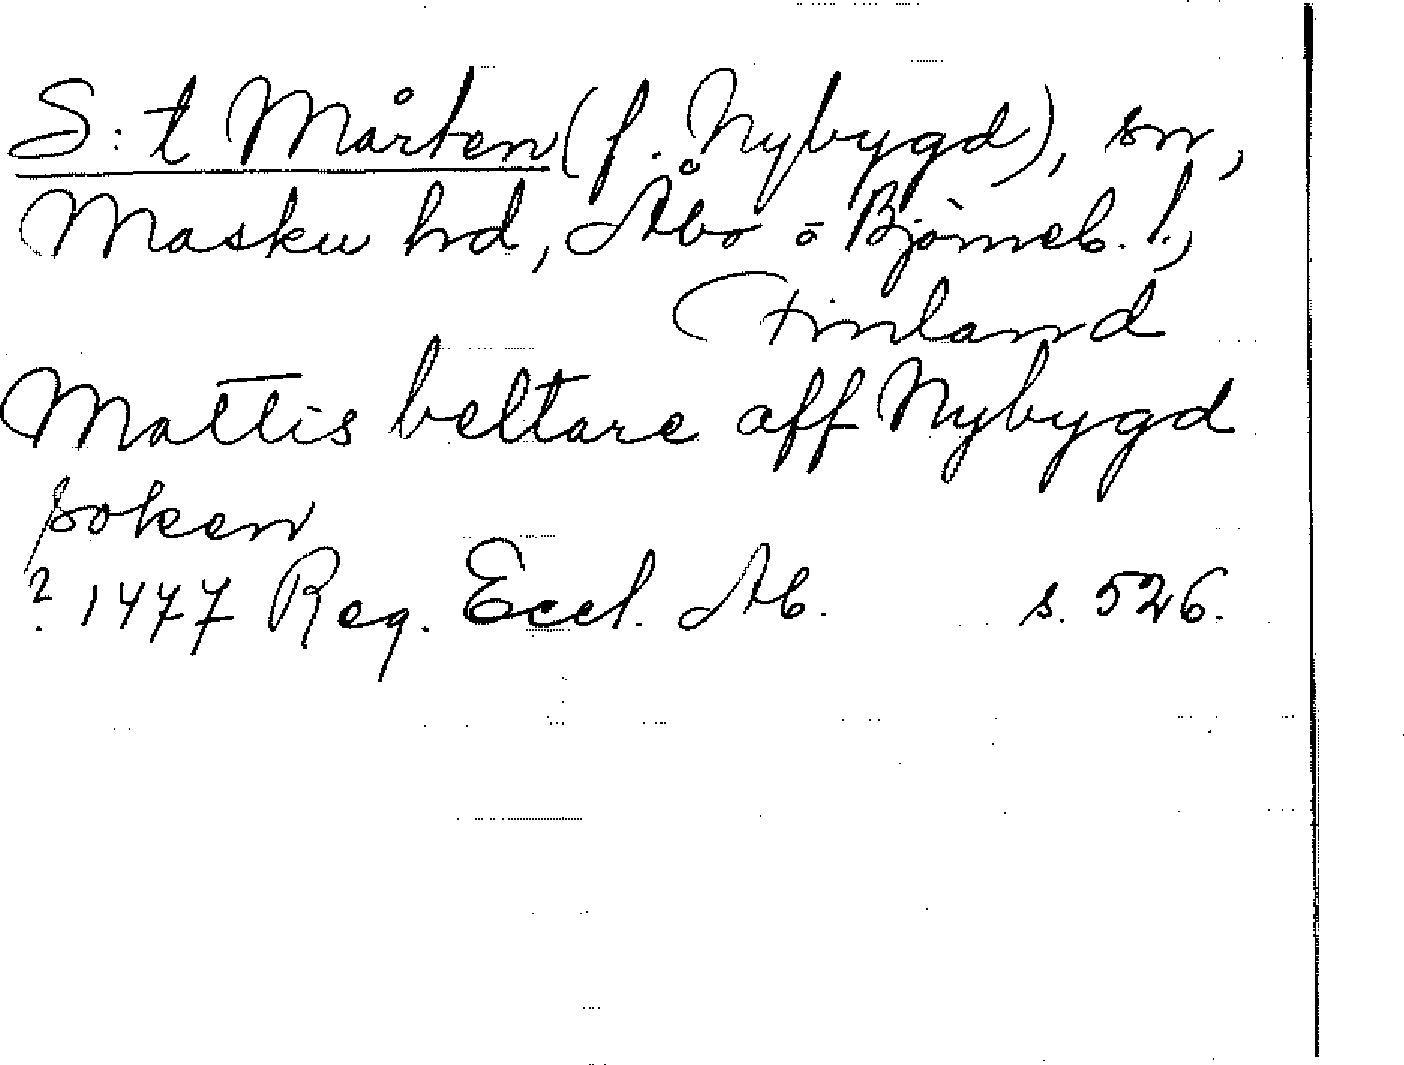 S:t Mårten (f. Nybygd), sn,
Masku hd, Åbo o Björneb. l.,
Finland
Mattis beltare aff Nybygd
soken
? 1477 Reg. Eccl. Ab. s. 526.